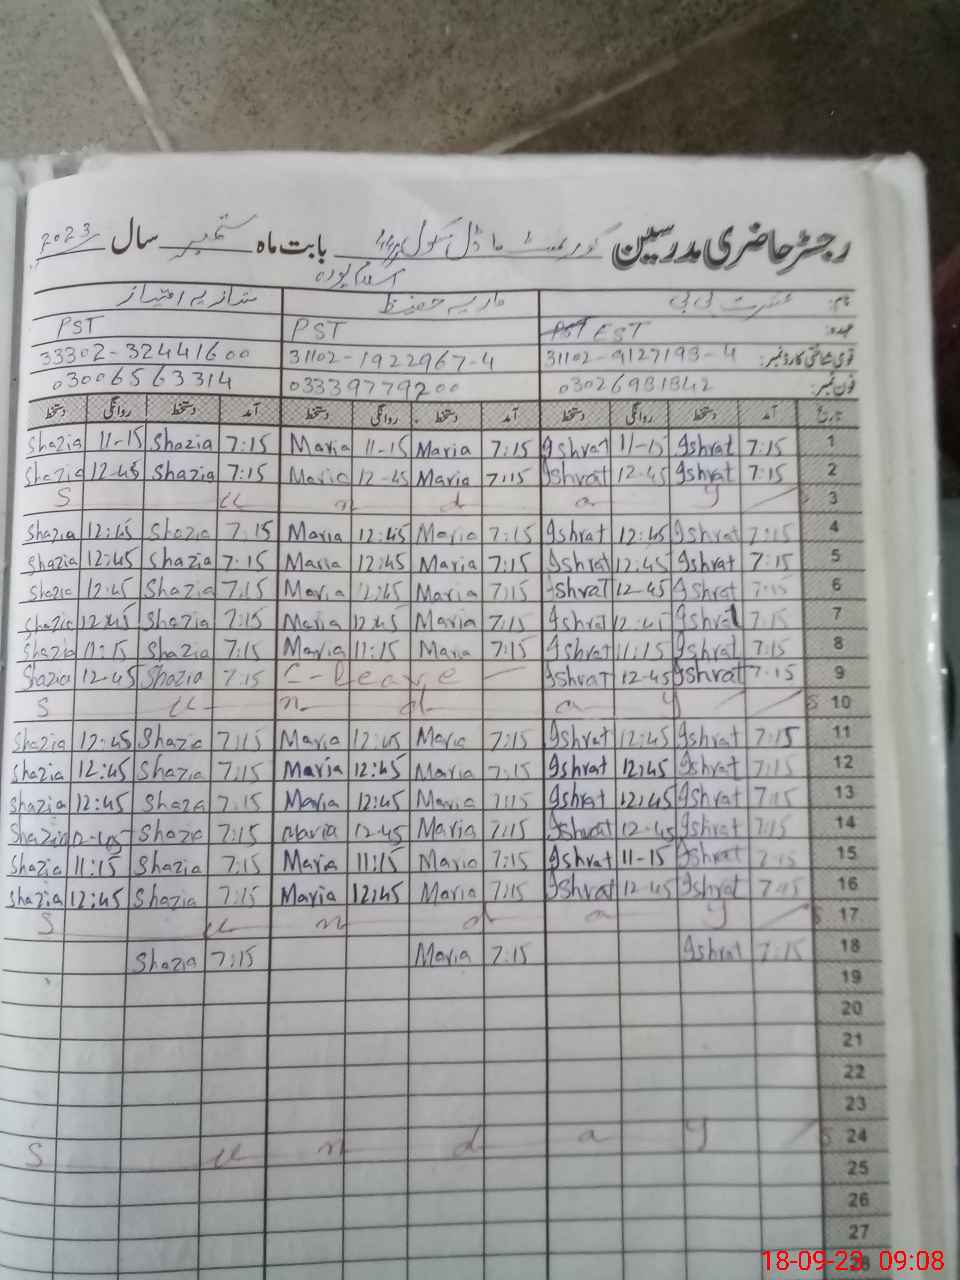 رجسٹر حاضری مدرسین گورنمنٹ ماڈل سکول بابت ماہ ستمبر سال 2023
اسلام پورہ
نام: عشرت بی بی ماریہ حفیظ شازیہ امتیاز
عہدہ: PST EST PST PST
قومی شناختی کارڈ نمبر: 31102-9127193-4 31102-1922967-4 33302-3244160 0
فون نمبر: 03026981842 03339779200 03006563314
تاریخ آمد دستخط روانگی دستخط آمد دستخط روانگی دستخط آمد دستخط روانگی دستخط
1 7:15 Ishrat 11-15 Ishrat 7:15 Maria 11-15 Maria 7:15 Shazia 11-15 Shazia
2 7:15 Ishrat 12-45 Ishrat 7:15 Maria 12-45 Maria 7:15 Shazia 12-45 Shazia
3 S u n d a y
4 7:15 Ishrat 12:45 Ishrat 7:15 Maria 12:45 Maria 7:15 Shazia 12:45 Shazia
5 7:15 Ishrat 12:45 Ishrat 7:15 Maria 12:45 Maria 7:15 Shazia 12:45 Shazia
6 7:15 Ishrat 12-45 Ishrat 7:15 Maria 12:45 Maria 7:15 Shazia 12:45 Shazia
7 7:15 Ishrat 12:45 Ishrat 7:15 Maria 12:45 Maria 7:15 Shazia 12:45 Shazia
8 7:15 Ishrat 11:15 Ishrat 7:15 Maria 11:15 Maria 7:15 Shazia 11:15 Shazia
9 7:15 Ishrat 12-45 Ishrat C-leave 7:15 Shazia 12-45 Shazia
10 S u n d a y
11 7:15 Ishrat 12:45 Ishrat 7:15 Maria 12:45 Maria 7:15 Shazia 12:45 Shazia
12 7:15 Ishrat 12:45 Ishrat 7:15 Maria 12:45 Maria 7:15 Shazia 12:45 Shazia
13 7:15 Ishrat 12:45 Ishrat 7:15 Maria 12:45 Maria 7:15 Shaza 12:45 Shazia
14 7:15 Ishrat 12-45 Ishrat 7:15 Maria 12-45 Maria 7:15 Shazia 12-45 Shazia
15 7:15 Ishrat 11-15 Ishrat 7:15 Maria 11:15 Maria 7:15 Shazia 11:15 Shazia
16 7:15 Ishrat 12-45 Ishrat 7:15 Maria 12:45 Maria 7:15 Shazia 12:45 Shazia
17 S u n d a y
18 7:15 Ishrat 7:15 Maria 7:15 Shazia
19
20
21
22
23
24 S u n d a y
25
26
27
28
18-09-23 09:08